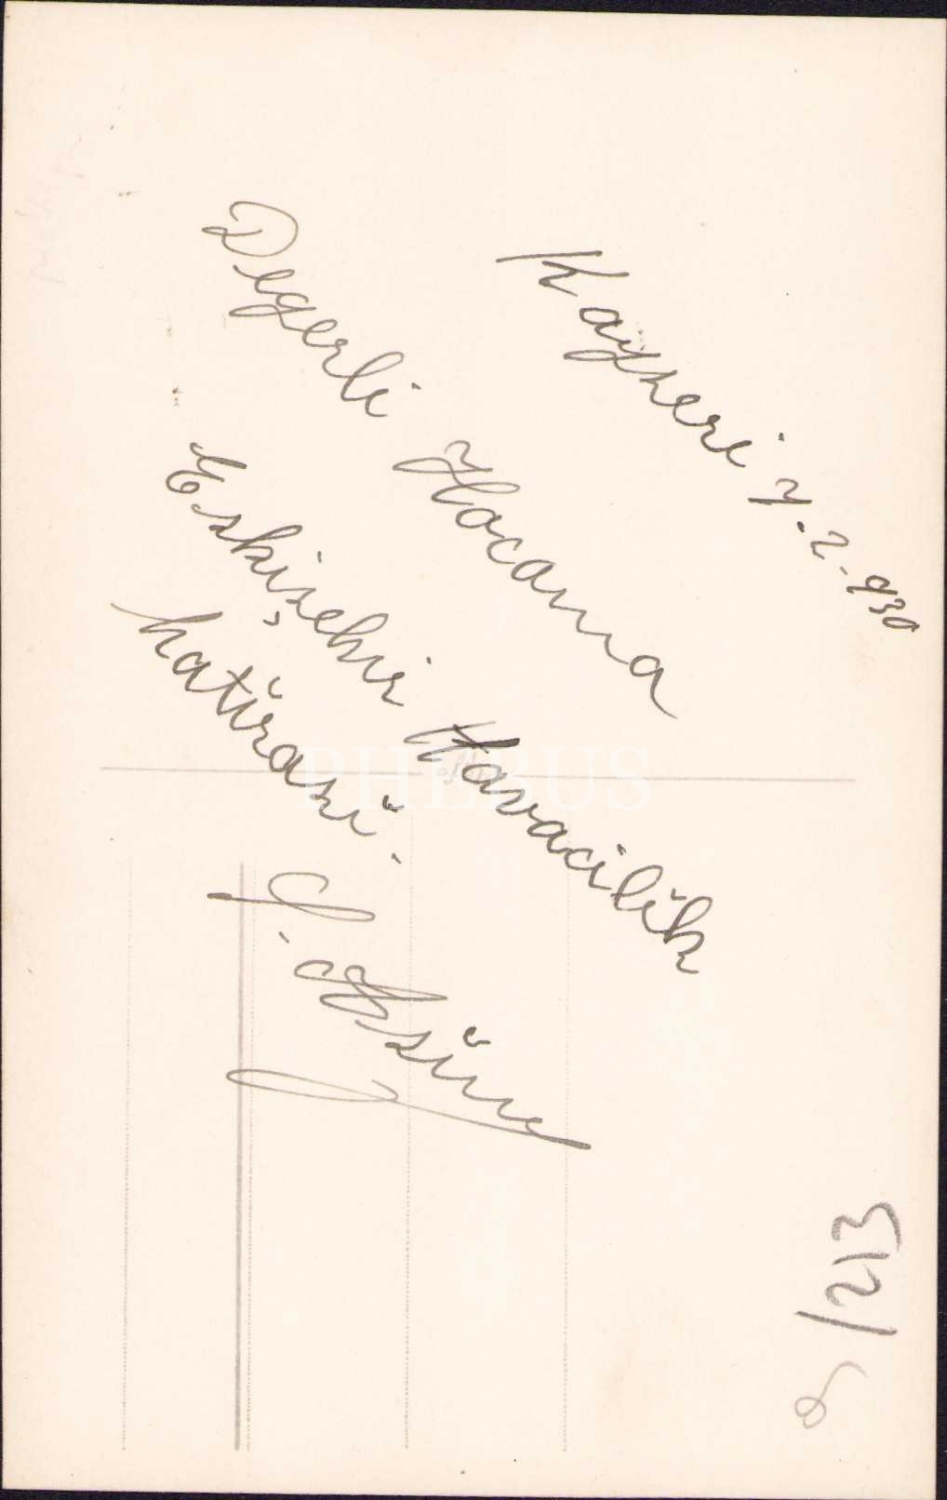 Kayseri 7.2.930
Değerli Hocama
Eskişehir Havacilĭk
hatĭrasĭ.
S. Asĭm
PHEBUS
/213